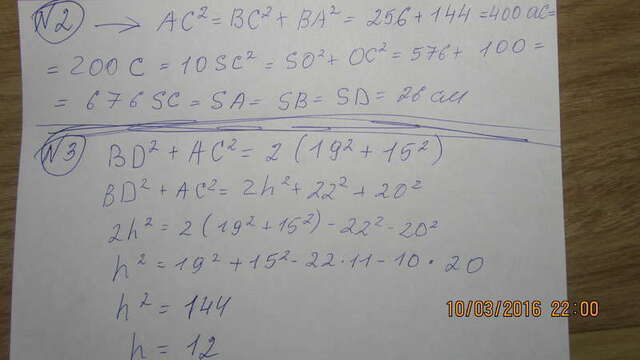 N2 → AC² = BC² + BA² = 256 + 144 = 400 AC=
= 200C = 10SC² = SO² + OC² = 576 + 100 =
= 676 SC = SA = SB = SD = 26 см
N3 BD² + AC² = 2 (19² + 15²)
BD² + AC² = 2h² + 22² + 20²
2h² = 2 (19² + 15²) - 22² - 20²
h² = 19² + 15² - 22·11 - 10·20
h² = 144
h = 12
10/03/2016 22:00